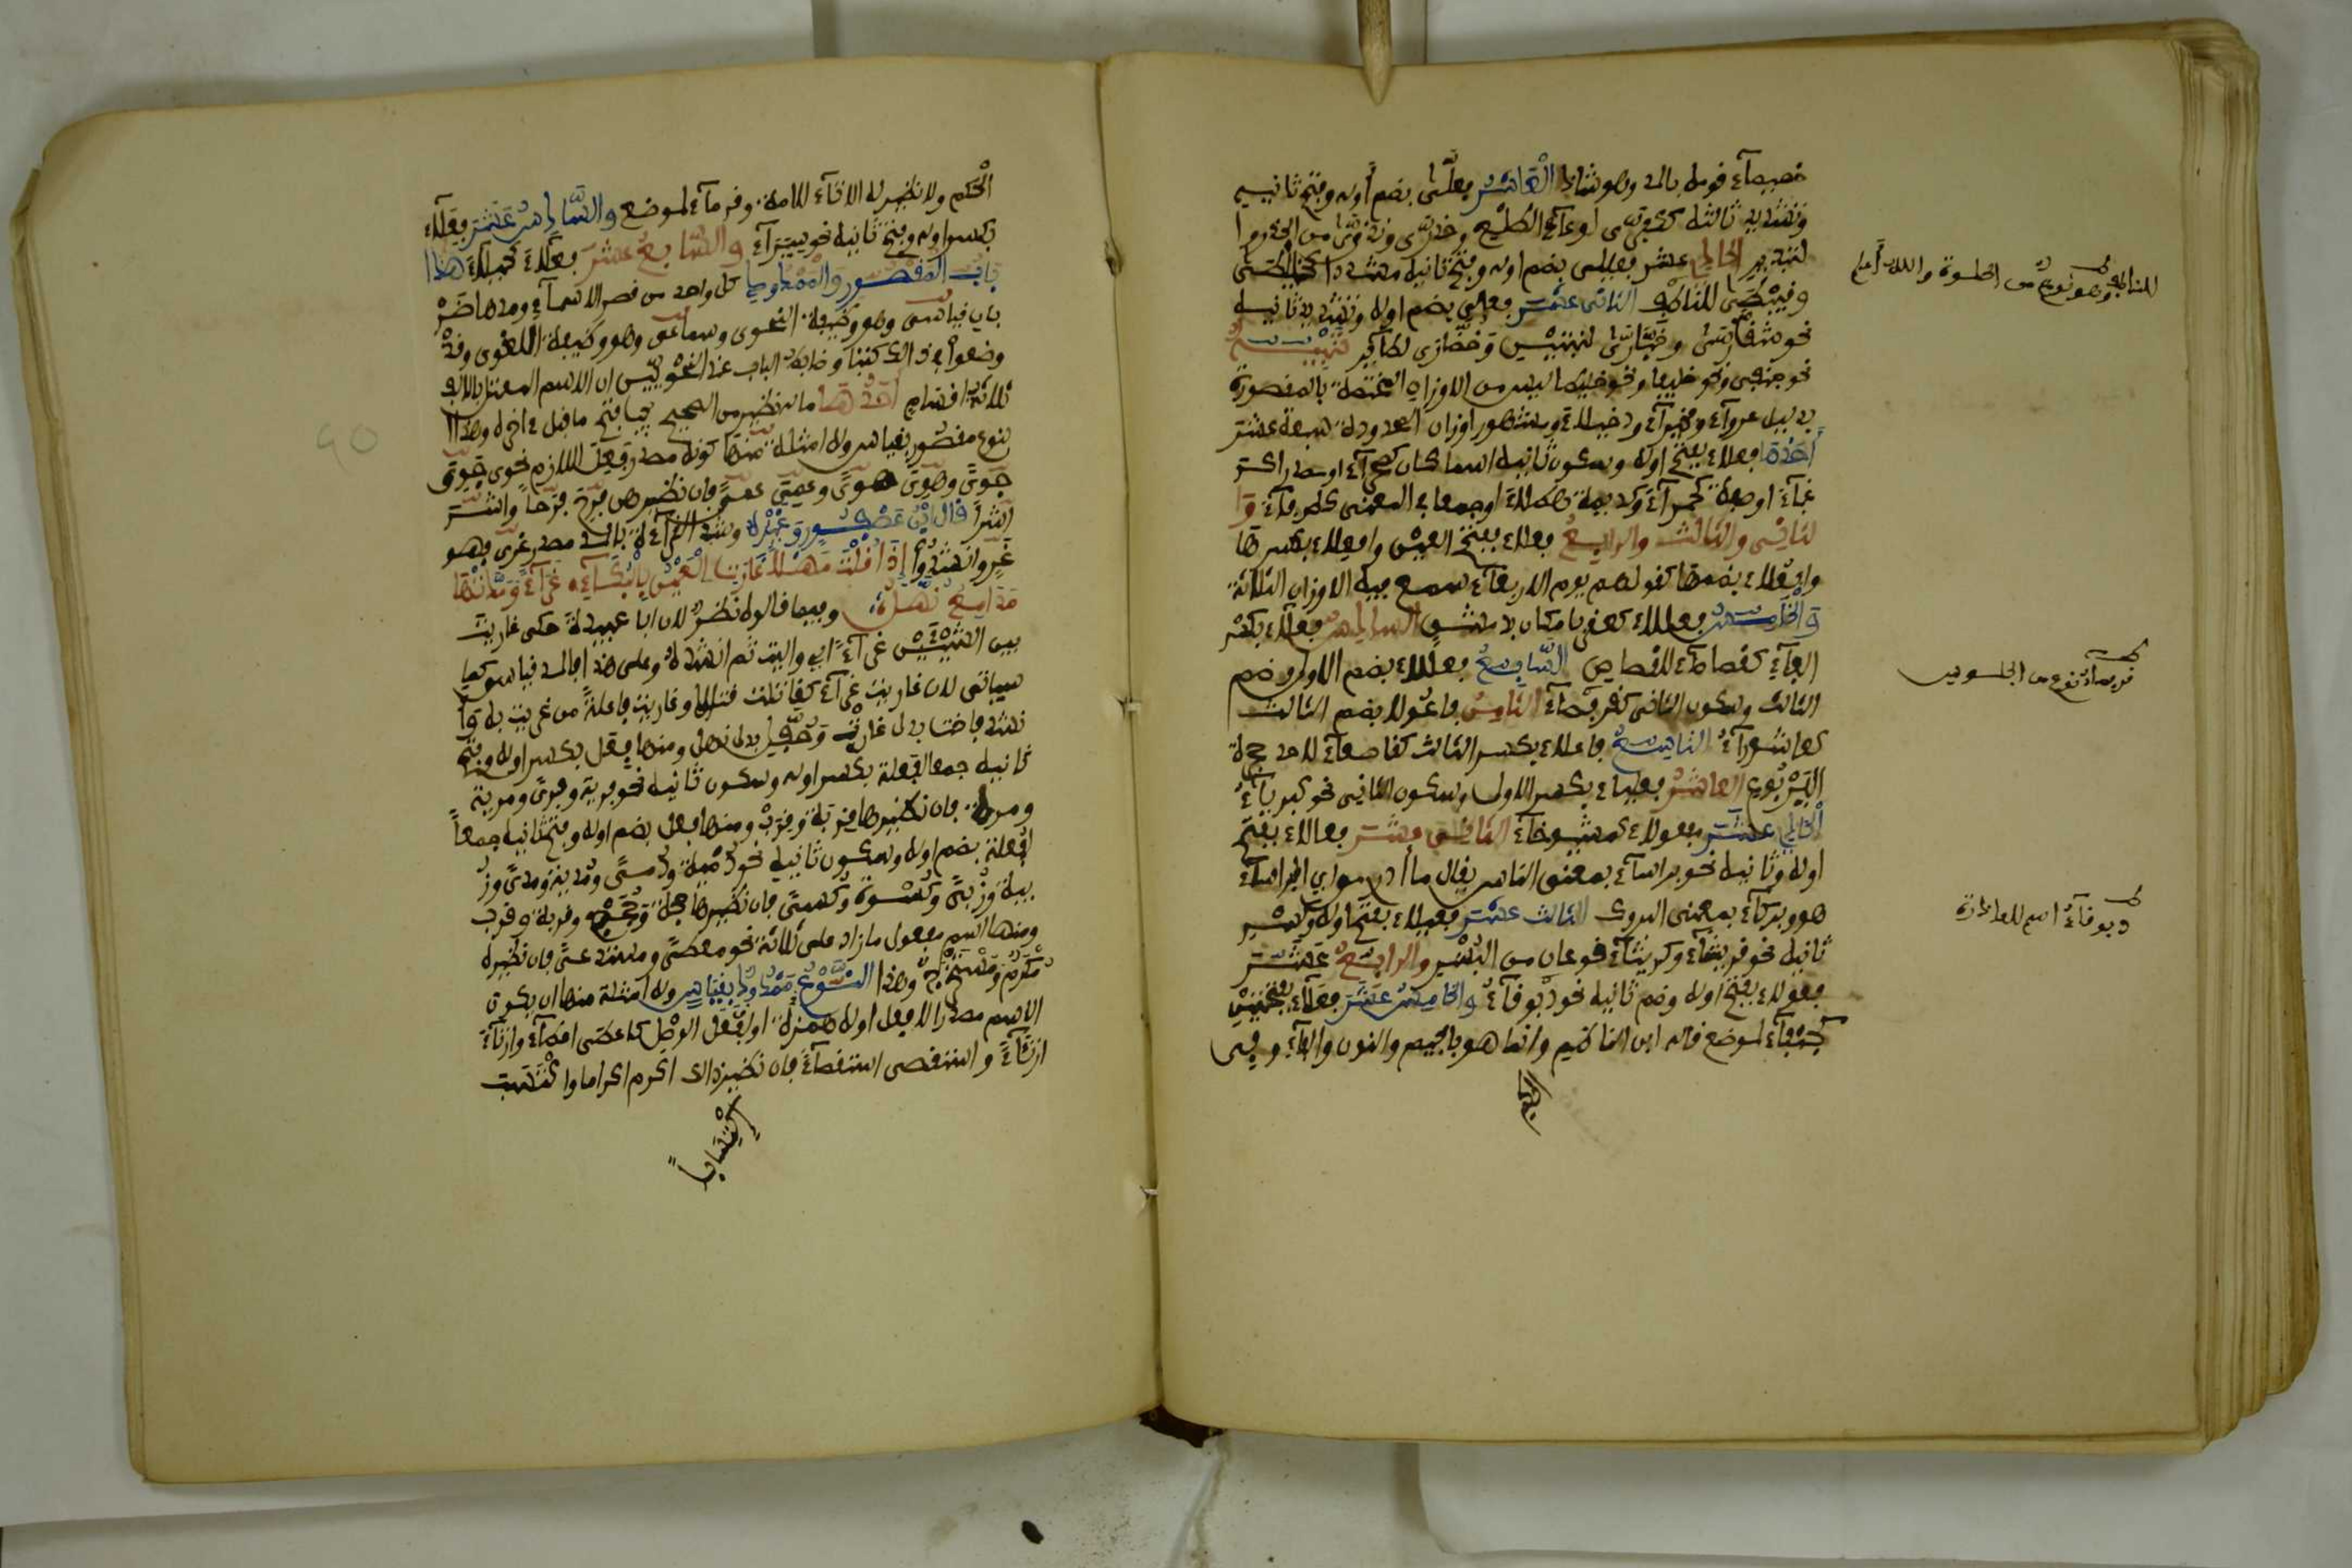 خصيصآء قوم بالمد وهو شاذ العاشر فعلّى بضم أوله وفتح ثانيه
وتشديد ثالثه ككفرّى لوعآء الطلع وحذرّى وبذرّى من الحذر وا
لتبذير الحادي عشر فعيلى بضم أوله وفتح ثانيه مشددا كخليطى
وقبيطى للناطف الثاني عشر فعالى بضم أوله وتشديد ثانيه
نحو شقارى وخبازى لنبتين وخضارى لطاير تنبيه
نحو جنفى ونحو خليفا ونحو خليطا ليس من الأوزان المختصة بالمقصورة
بدليل عروآء وفخيرآء ودخيلاء ومشهور أوزان الممدودة سبعة عشر
أحدها فعلاء بفتح أوله وسكون ثانيه اسما كان كصحرآء أو مصدرا كر
غبآء أو صفة كحمرآء وكديمة هطلاء أو جمعا في المعنى كطرفآء وا
لثاني والثالث والرابع أفعلاء بفتح العين وأفعلاء بكسرها
وأفعلاء بضمها كقولهم يوم الأربعآء سمع فيه الأوزان الثلاثة
والخامس فعللاء كعقربا مكان السادس فعالاء بكسر
الفآء كقصاصآء للقصاص السابع فعللاء بضم الأول وضم
الثالث وسكون الثاني كقرفصآء الثامن فاعولاء بضم الثالث
كعاشورآء التاسع فاعلاء بكسر الثالث كقاصعآء لأحد جحرة
اليربوع العاشر فعلياء بكسر الأول وسكون الثاني نحو كبريآء
الحادي عشر مفعولاء كمشيوخآء الثاني عشر فعالاء بفتح
أوله وثانيه نحو براسآء بمعنى الناس يقال ما أدري أي البراسآء
هو وبركآء بمعنى البروك الثالث عشر فعيلاء بفتح أوله وكسر
ثانيه نحو قريثآء وكريثآء نوعان من البسر والرابع عشر
فعولاء بفتح أوله وضم ثانيه نحو دبوقآء والخامس عشر فعلآء بفتحتين
كجنفآء لموضع قاله ابن الناظم وإنما هو بالجيم والنون والفآء وفي
للناطف وهو نوع من الحلوة والله أعلم
قريثآء نوع من
دبوقآء اسم للعذرة
المحكم ولا نظير له إلا ثأدآء للأمة وفرمآء لموضع والسادس عشر فعلاء
بكسر أوله وفتح ثانيه نحو سيرآء والسابع عشر فعلاء كخيلاء هذا
باب المقصور والممدود كل واحد من قصر الأسمآء ومدها ضر
بان قياسي وهو وظيفة النحوي وسماعي وهو وظيفة اللغوي وقد
وضعوا في ذلك كتبا وضابط الباب عند النحويين أن الاسم المعتل بالألف
ثلاثة أقسام أحدها ما له نظير من الصحيح يجب فتح ما قبل آخره وهذا ا
لنوع مقصور بقياس وله أمثلة منها كونه مصدر فعل اللازم نحو جوى
جوى وهوى هوى وعمي عمى فإن نظيرها فرح فرحا وأشر
أشرا قال ابن عصفور وغيره وشذ الغرآء بالمد مصدر غري فهو
غر وأنشدوا إذا قلت مهلا غارت العين بالبكآء غرآء ومدتها
مدامع نهل وفيما قالوه نظر لأن أبا عبيدة حكى غاريت
بين الشيئين غرآء أي واليت ثم أنشده وعلى هذا فالمد قياس كما
سيأتي لأن غاريت غرآء كقاتلت قتالا وغاريت فاعلت من غريت به وأ
نشد فاضت بدل غارت وحفل بدل نهل ومنها فعل بكسر أوله وفتح
ثانيه جمعا لفعلة بكسر أوله وسكون ثانيه نحو فرية وفرى ومرية
ومرى فإن نظيرها قربة وقرب ومنها فعل بضم أوله وفتح ثانيه جمعا
لفعلة بضم أوله وسكون ثانيه نحو دمية ودمى ومدية ومدى وز
بية وزبى وكسوة وكسى فإن نظيرها حجة وحجج وقربة وقرب
ومنها اسم مفعول ما زاد على ثلاثة نحو معطى ومستدعى فإن نظيره
مكرم ومستخرج وهذا النوع ممدود بقياس وله أمثلة منها أن يكون
الاسم مصدرا لأفعل أوله همزة أو لفعل الوصل كأعطى إعطآء وارتأى
ارتئآء واستقصى استقصآء فإن نظير ذلك أكرم إكراما واكتسب
اكتسابا